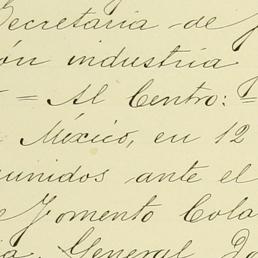 Secretaria de
ón industria
= Al Centro: =
México, en 12
unidos ante el
Fomento Colo
General Do